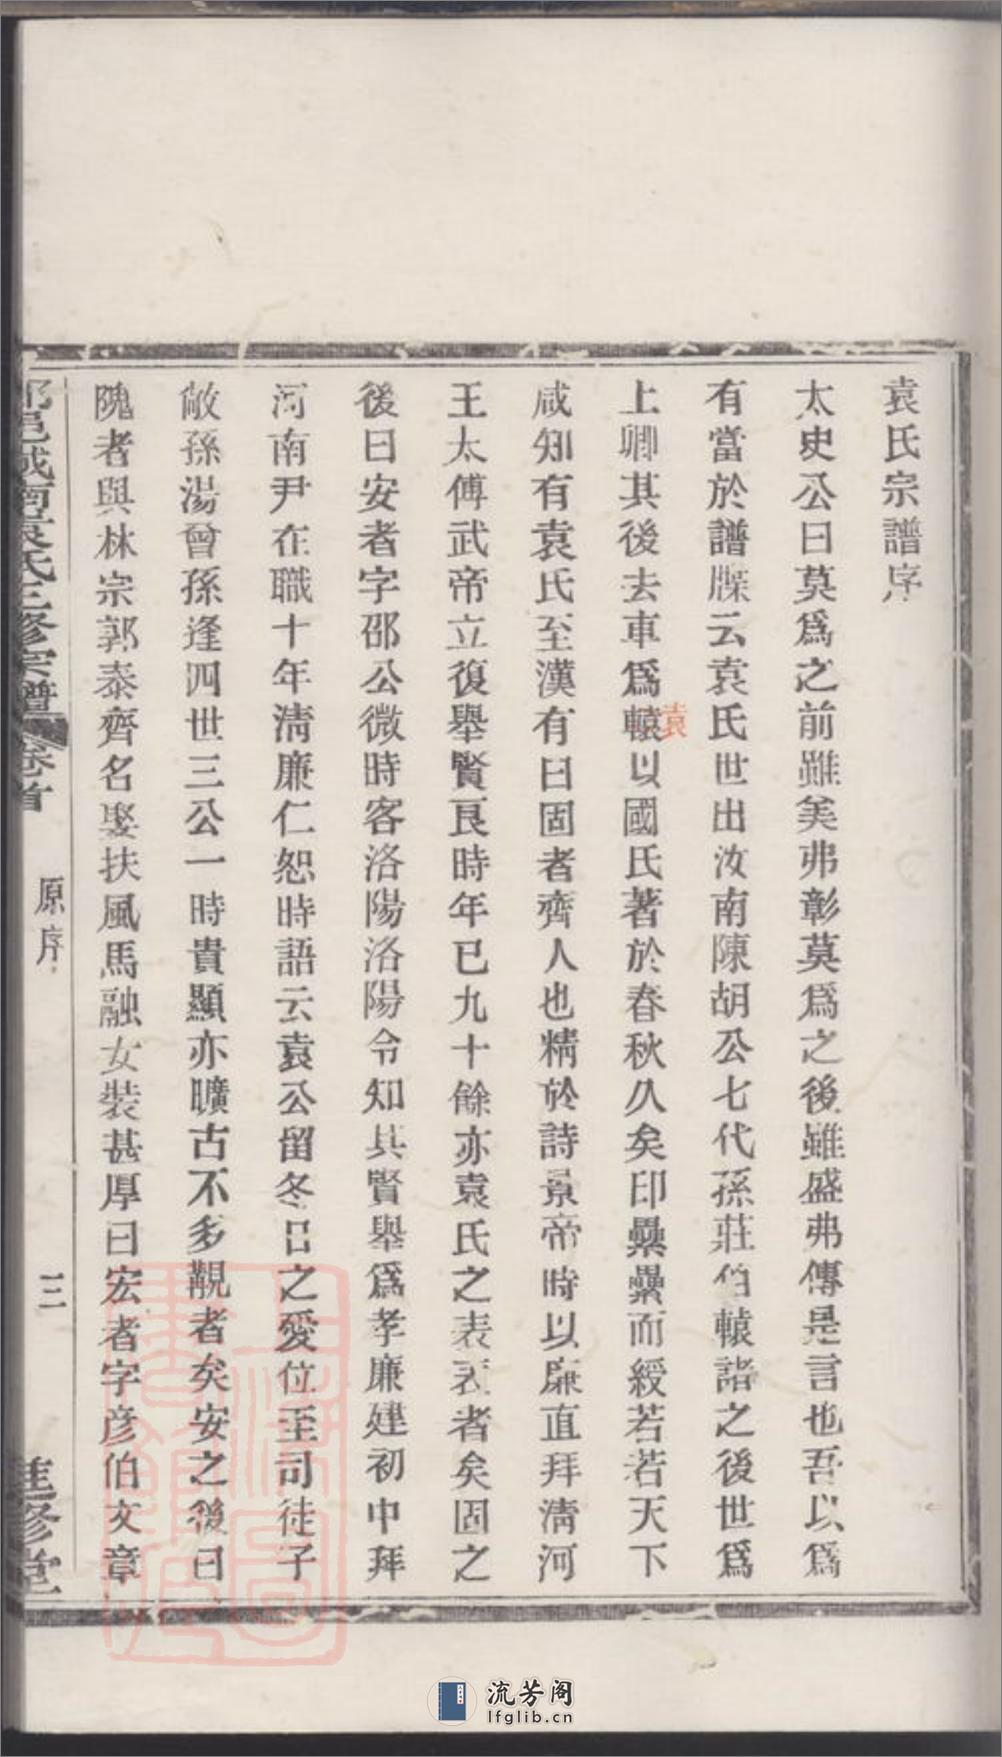 袁氏宗譜序
太史公曰莫爲之前雖美弗彰莫爲之後雖盛弗傳是言也吾以爲
有當於譜牒云袁氏世出汝南陳胡公七代孫莊伯轅諸之後世爲
上卿其後去車爲轅以國氏著於春秋久矣印纍纍而綬若若天下
袁
咸知有袁氏至漢有曰固者齊人也精於詩景帝時以廉直拜清河
王太傅武帝立復舉賢良時年已九十餘亦袁氏之表表者矣固之
後曰安者字邵公微時客洛陽洛陽令知其賢舉爲孝廉建初中拜
河南尹在職十年淸廉仁恕時語云袁公留冬日之愛位至司徒子
敞孫湯曾孫逢四世三公一時貴顯亦曠古不多覯者矣安之後曰
隗者與林宗郭泰齊名娶扶風馬融女裝甚厚曰宏者字彦伯文章
邑城南袁氏三修宗譜
卷首
原序
三
修堂
流芳阁
lfglib.cn